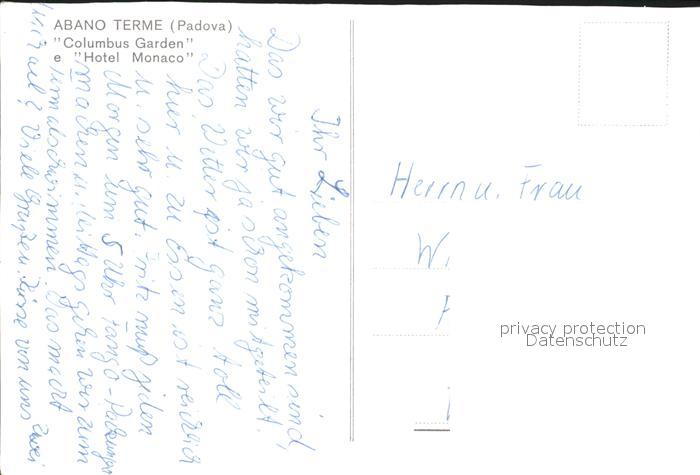 ABANO TERME (Padova)
"Columbus Garden"
e "Hotel Monaco"
Ihr Lieben
Das wir gut angekommen sind,
hatten wir ja schon mitgeteilt!
Das Wetter ist ganz toll
hier u. zu Essen ist reichlich
u. sehr gut. Fritz muß jeden
Morgen um 5 Uhr Fango-Packungen
machen u. Mittags gehen wir zum
schwimmen. Das macht
viel Viele Grüßen. von uns zwei
Herrn u. Frau
W.
privacy protection
Datenschutz